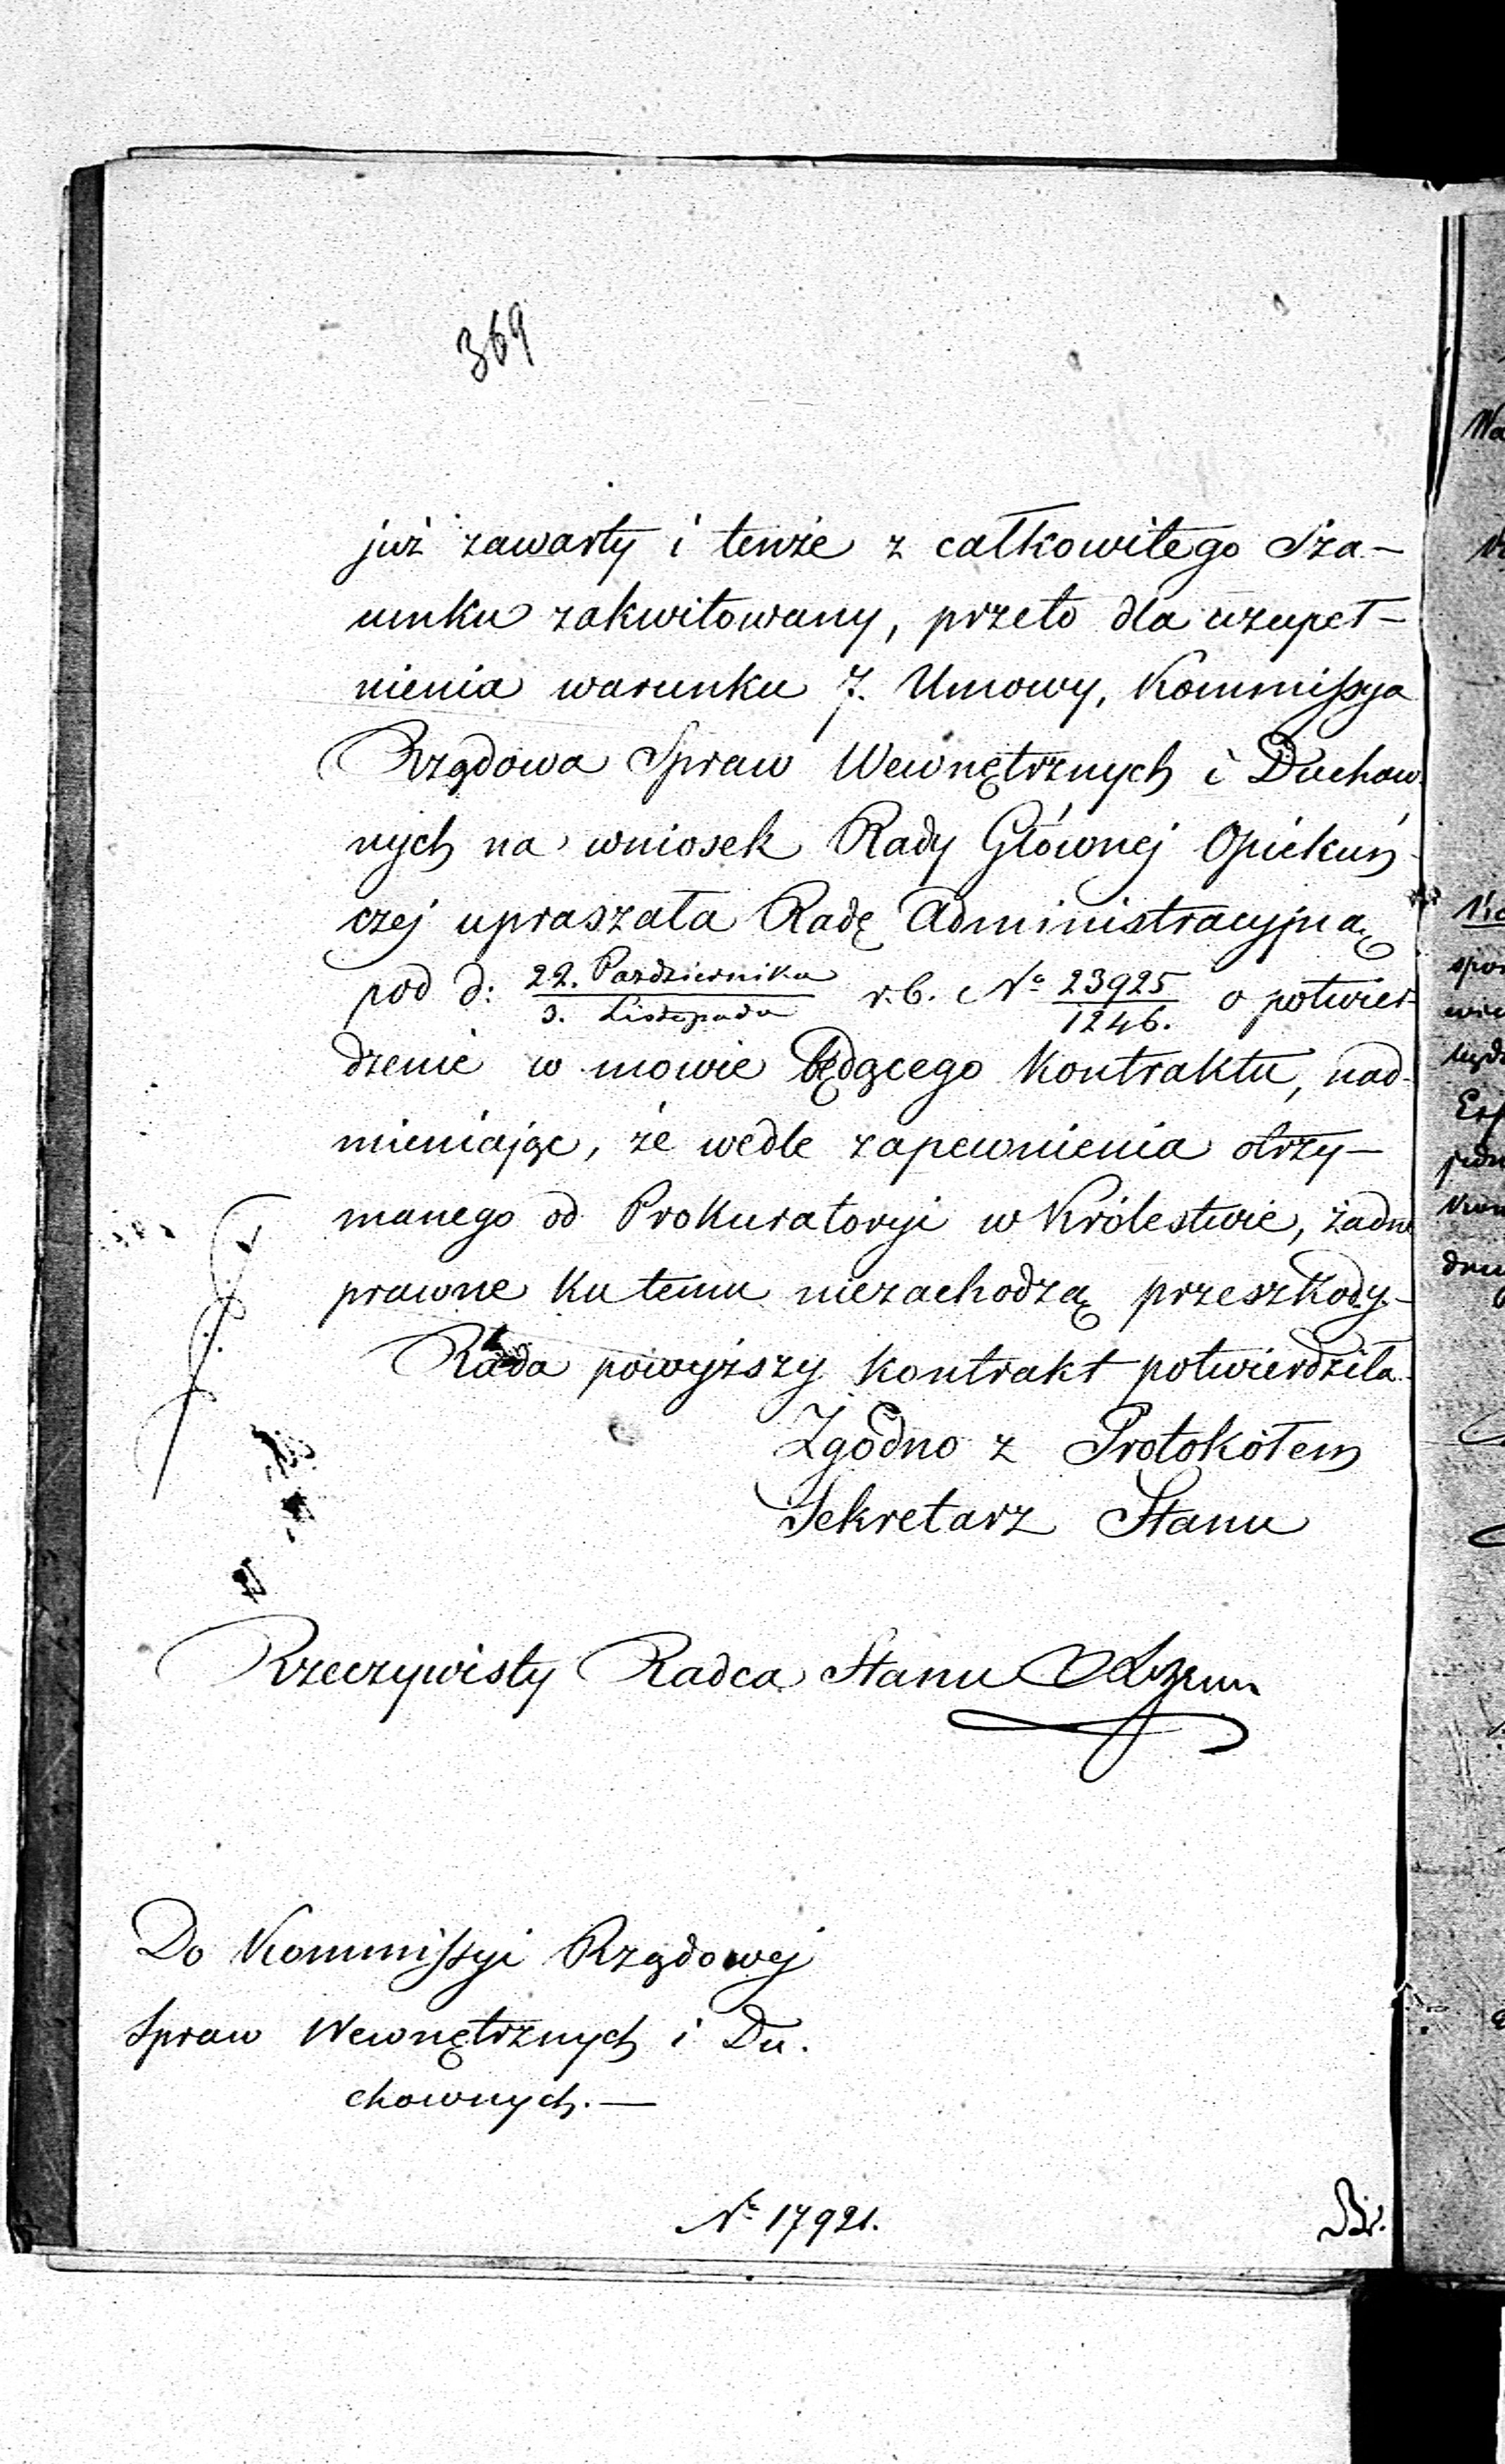 369
już zawarty i tenże z całkowitego Sza-
unku zakwitowany, przeto dla uzupeł-
nienia warunku 7. Umowy, Kommissya
Rządowa Spraw Wewnętrznych i Duchow-
nych na wniosek Rady Głównej Opiekuń-
czej upraszała Radę Administracyjną
pod d: 22. Pazdziernika / 3. Listopada r.b. No 23925 / 1246. o potwier-
dzenie w mowie będącego Kontraktu, nad-
mieniając, że wedle zapewnienia otrzy-
manego od Prokuratoryi w Królestwie, żadne
prawne ku temu niezachodzą przeszkody.-
Rada powyższy kontrakt potwierdziła.
Zgodno z Protokołem
Sekretarz Stanu
Rzeczywisty Radca Stanu
Do Kommissyi Rządowej
Spraw Wewnętrznych i Du.
chownych.-
No 17921.